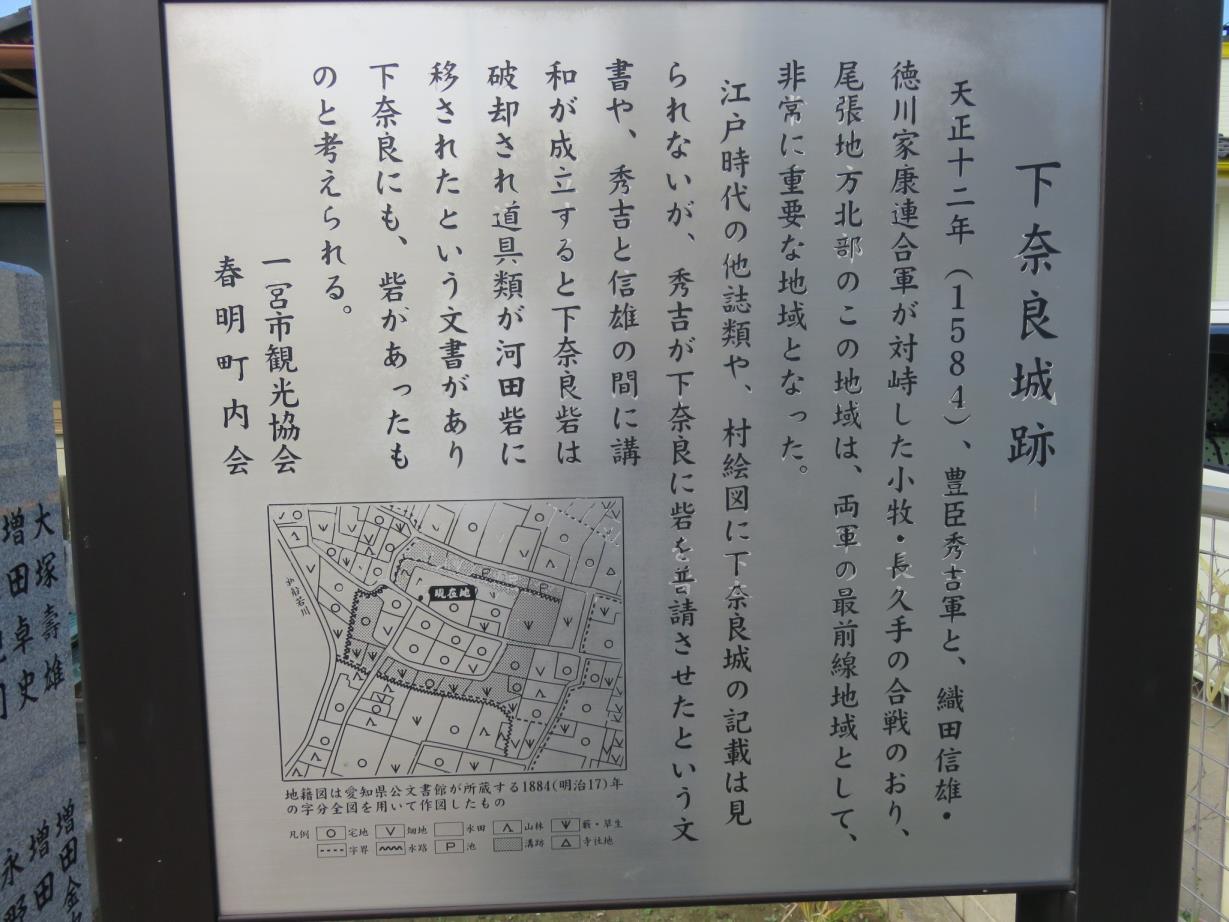 下奈良城跡
天正十二年（1584）、豊臣秀吉軍と、織田信雄・
徳川家康連合軍が対峙した小牧・長久手の合戦のおり、
尾張地方北部のこの地域は、両軍の最前線地域として、
非常に重要な地域となった。
江戸時代の他誌類や、村絵図に下奈良城の記載は見
られないが、秀吉が下奈良に砦を普請させたという文
書や、秀吉と信雄の間に講
和が成立すると下奈良砦は
破却され道具類が河田砦に
移されたという文書があり
下奈良にも、砦があったも
のと考えられる。
一宮市観光協会
春明町内会
現在地
地籍図は愛知県公文書館が所蔵する1884(明治17)年
の字分全図を用いて作図したもの
凡例 宅地 畑地 水田 山林 藪・草生
字界 水路 P 池 溝跡 寺社地
大塚壽雄
増田卓史
増田金
増田
永野